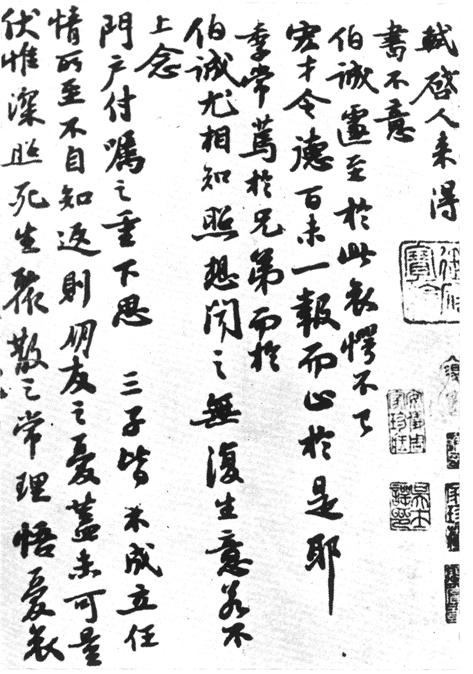 軾啓人来得
書不意
伯誠遽至於此哀愕不已
宏才令德百未一報而止於是耶
季常篤於兄弟而於
伯誠尤相知照想聞之無復生意若不
上念
門户付囑之重下思 三子皆未成立任
情所至不自知返則朋友之憂蓋未可量
伏惟深照死生聚散之常理悟憂哀